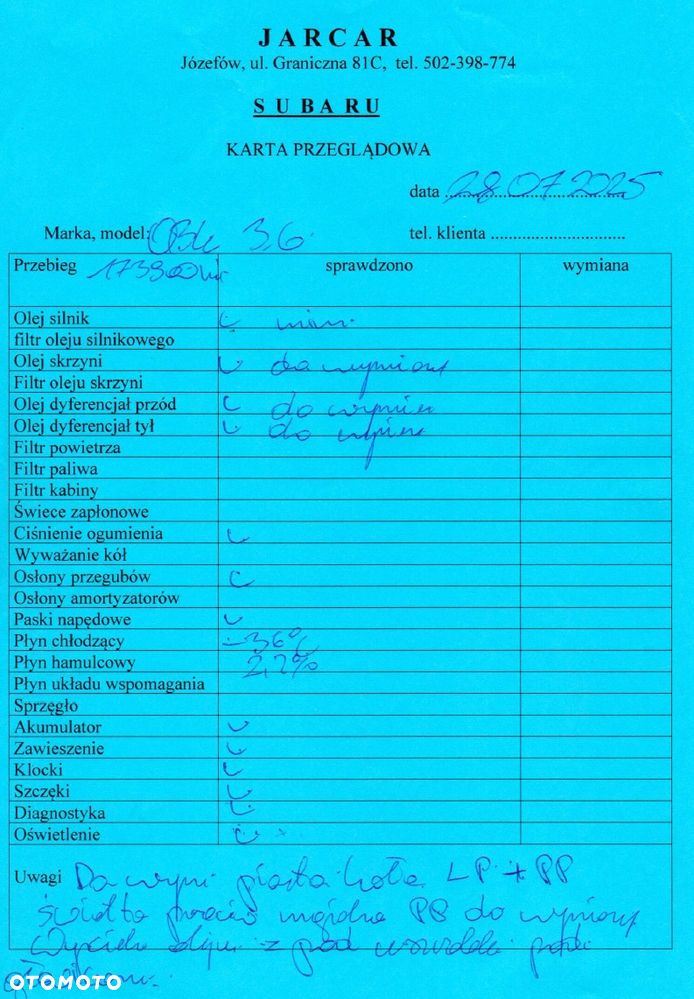 JARCAR
Józefów, ul. Graniczna 81C, tel. 502-398-774
SUBARU
KARTA PRZEGLĄDOWA
data 28.07.2025
Marka, model: OBK 3,6 tel. klienta ..............................
Przebieg 173900 km sprawdzono wymiana
Olej silnik
filtr oleju silnikowego
Olej skrzyni do wymiany
Filtr oleju skrzyni
Olej dyferencjał przód do wymian
Olej dyferencjał tył do wymian
Filtr powietrza
Filtr paliwa
Filtr kabiny
Świece zapłonowe
Ciśnienie ogumienia
Wyważanie kół
Osłony przegubów
Osłony amortyzatorów
Paski napędowe
Płyn chłodzący -36°C
Płyn hamulcowy 2,2%
Płyn układu wspomagania
Sprzęgło
Akumulator
Zawieszenie
Klocki
Szczęki
Diagnostyka
Oświetlenie
Uwagi Do wym piasta koła LP + PP
światła PB do wymiany
z pod
OTOMOTO